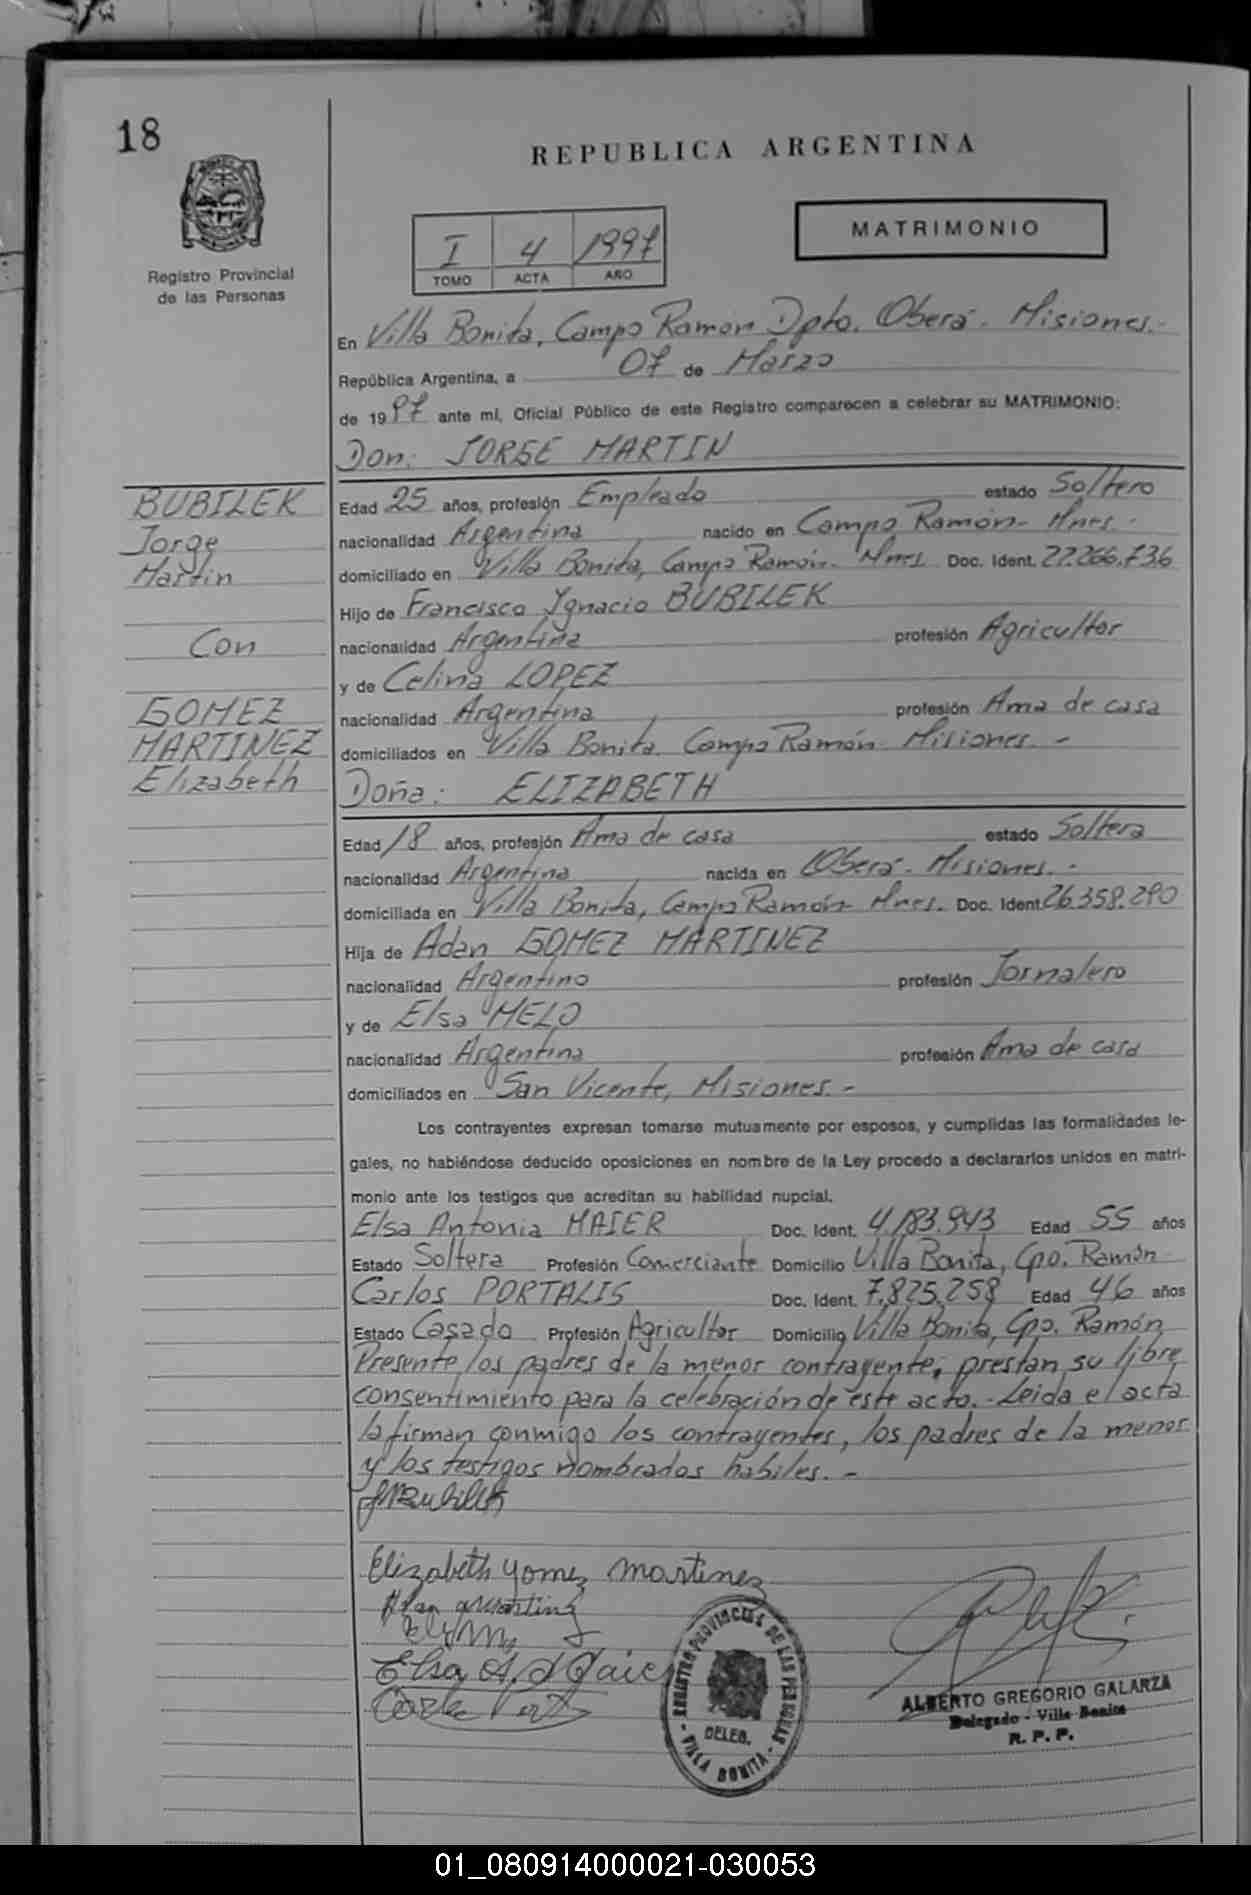 18
REPUBLICA ARGENTINA
Registro Provincial
de las Personas
I 4 1997
TOMO ACTA AÑO
MATRIMONIO
En Villa Bonita, Campo Ramón Dpto. Oberá - Misiones.-
República Argentina, a 07 de Marzo
de 1997 ante mí, Oficial Público de este Registro comparecen a celebrar su MATRIMONIO:
Don: JORGE MARTIN
BUBILEK
Jorge
Martin
Con
GOMEZ
MARTINEZ
Elizabeth
Edad 25 años, profesión Empleado estado Soltero
nacionalidad Argentina nacido en Campo Ramón- Mnes.-
domiciliado en Villa Bonita, Campo Ramón- Mnes. Doc. Ident. 22.266.736
Hijo de Francisco Ygnacio BUBILEK
nacionalidad Argentina profesión Agricultor
y de Celina LOPEZ
nacionalidad Argentina profesión Ama de casa
domiciliados en Villa Bonita, Campo Ramón- Misiones.-
Doña: ELIZABETH
Edad 18 años, profesión Ama de casa estado Soltera
nacionalidad Argentina nacida en Oberá- Misiones.-
domiciliada en Villa Bonita, Campo Ramón- Mnes. Doc. Ident. 26.358.290
Hija de Adan GOMEZ MARTINEZ
nacionalidad Argentino profesión Jornalero
y de Elsa MELO
nacionalidad Argentina profesión Ama de casa
domiciliados en San Vicente, Misiones.-
Los contrayentes expresan tomarse mutuamente por esposos, y cumplidas las formalidades le-
gales, no habiéndose deducido oposiciones en nombre de la Ley procedo a declararlos unidos en matri-
monio ante los testigos que acreditan su habilidad nupcial.
Elsa Antonia MAIER Doc. Ident. 4.183.943 Edad 55 años
Estado Soltera Profesión Comerciante Domicilio Villa Bonita, Cpo. Ramón
Carlos PORTALIS Doc. Ident. 7.825.258 Edad 46 años
Estado Casado Profesión Agricultor Domicilio Villa Bonita, Cpo. Ramón
Presente los padres de la menor contrayente, prestan su libre
consentimiento para la celebración de este acto.- Leida el acta
la firman conmigo los contrayentes, los padres de la menor
y los testigos nombrados habiles.-
Elizabeth gomez martinez
REGISTRO PROVINCIAL DE LAS PERSONAS
DELEG.
- VILLA BONITA -
ALBERTO GREGORIO GALARZA
Delegado - Villa Bonita
R. P. P.
01_080914000021-030053